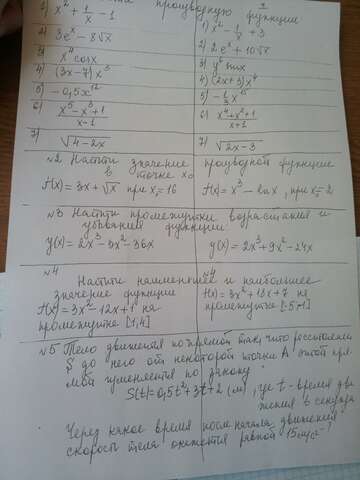 производную функции
1) x² + 1/x - 1
1) x² - 1/x + 3
2) 3eˣ - 8√x
2) 2eˣ + 10√x
3) x⁴ cosx
4) (3x-7) x³
4) (2x+3) x⁴
5) -0,5x¹²
6) (x⁵-x³+1)/(x-1)
6) (x⁴+x²+1)/(x+1)
7) √(4-2x)
7) √(2x-3)
№2 Найти значение производной функции
в точке x₀
f(x) = 3x + √x при x₀=16
f(x) = x³ - lnx, при x₀=2
№3 Найти промежутки возрастания и
убывания функции:
y(x) = 2x³ - 3x² - 36x
y(x) = 2x³ + 9x² - 24x
№4
№4
Найти наименьшее и наибольшее
значение функции
f(x) = 3x² - 12x + 1 на
промежутке [1;4]
на
промежутке
№5 Тело движется по прямой так, что расстояние
S до него от некоторой точки А этой пря
мой изменяется по закону
S(t) = 0,5t² + 3t + 2 (м), где t - время дви
жения в секундах
Через какое время после начала движения
скорость тела окажется равной 15 м/с?